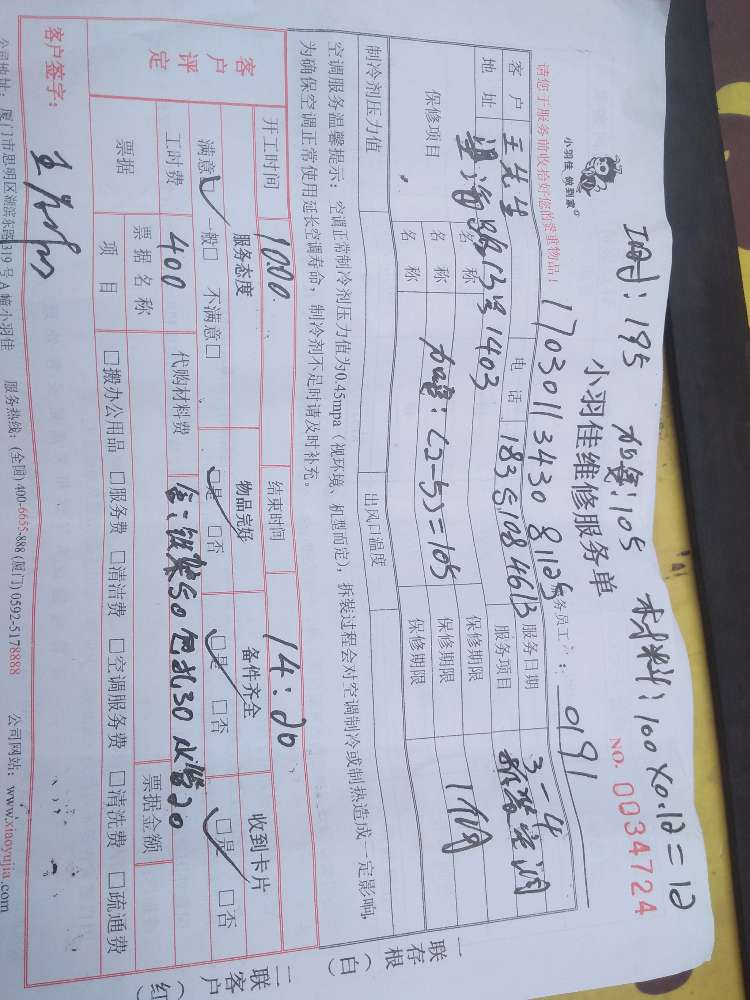 工时：195 加氟：105 材料：100×0.12=12
小羽佳 做到家
小羽佳维修服务单
NO. 0034724
请您于服务前收拾好您的贵重物品！
1703011343081125
服务员工 0191
客户 王先生 电话 18351084613 服务日期 3-4
地址 13号1403 服务项目 空调
保修项目 名称 保修期限
名称 保修期限 1个月
名称 加氟：(2-5)=105 保修期限
制冷剂压力值 出风口温度
空调服务温馨提示：空调正常制冷剂压力值为0.45mpa（视环境、机型而定），拆装过程会对空调制冷或制热造成一定影响，
为确保空调正常使用延长空调寿命，制冷剂不足时请及时补充。
开工时间 10:00 结束时间 14:20
客户评定
服务态度 物品完好 备件齐全 收到卡片
满意☑ 一般□ 不满意□ ☑是 □否 ☑是 □否 ☑是 □否
工时费 400 代购材料费 50 30 20
票据 票据名称 票据金额
项目 □搬办公用品 □服务费 □清洁费 □空调服务费 □清洗费 □疏通费
客户签字：
公司地址：厦门市思明区湖滨东路319号A幢小羽佳 服务热线：(全国)400-6655-888 (厦门)0592-5178888 公司网站：www.xiaoyujia.com
一联存根（白）
二联客户（红